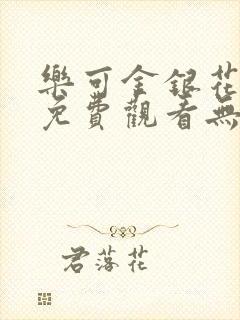 樂可金銀花
免費觀看無
君落花